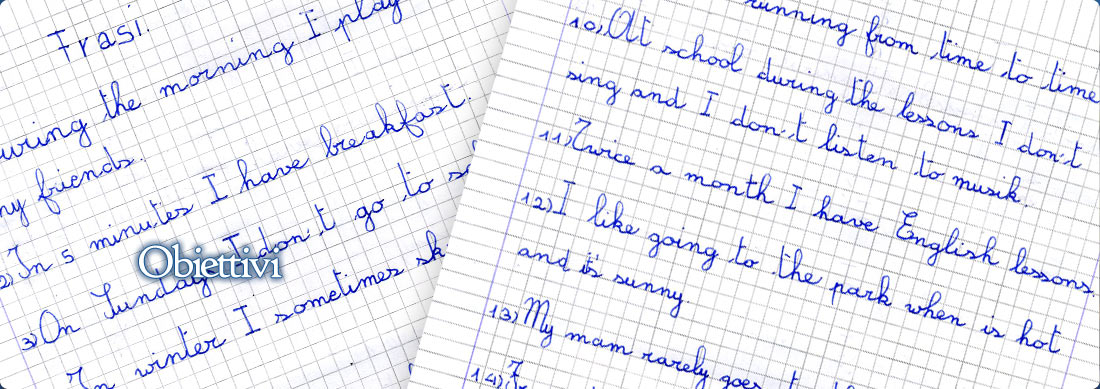 Frasi:
uring the morning I play
my friends.
2) In 5 minutes I have breakfast.
3) On Sunday I don't go to
In winter I sometimes sk
Obiettivi
running from time to time
10) At school during the lessons I don't
sing and I don't listen to musik.
11) Twice a month I have English lessons.
12) I like going to the park when is hot
and is sunny.
13) My mam rarely goes
14)